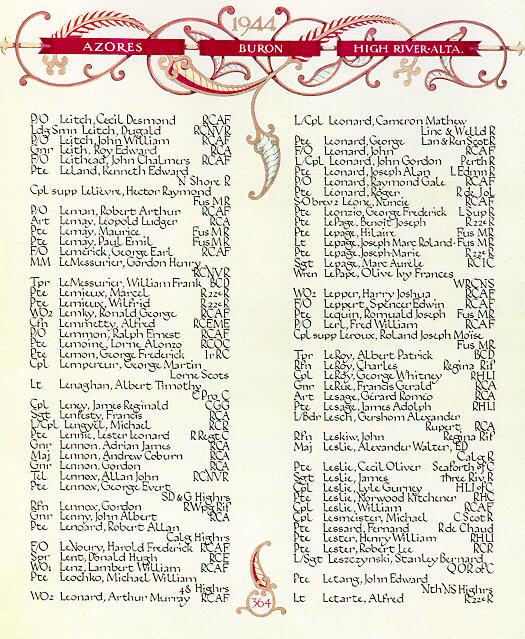 1944
AZORES BURON HIGH RIVER·ALTA.
P/O Leitch, Cecil Desmond RCAF
Ldg Smn Leitch, Dugald RCNVR
P/O Leitch, John William RCAF
Gnr Leith, Roy Edward RCA
F/O Leithead, John Chalmers RCAF
Pte LeLand, Kenneth Edward
N Shore R
Cpl supp Lelièvre, Hector Raymond
Fus MR
P/O Leman, Robert Arthur RCAF
Art Lemay, Leopold Ludger RCA
Pte Lemay, Maurice Fus MR
Pte Lemay, Paul Emil Fus MR
F/O Lemerick, George Earl RCAF
MM LeMessurier, Gordon Henry
RCNVR
Tpr LeMessurier, William Frank BCD
Pte Lemieux, Marcel R22eR
Pte Lemieux, Wilfrid R22eR
WO2 Lemky, Ronald George RCAF
Cfn Lemmetty, Alfred RCEME
P/O Lemmon, Ralph Ernest RCAF
Pte Lemoine, Lorne Alonzo RCOC
Pte Lemon, George Frederick 1r RC
Cpl Lempereur, George Martin
Lorne Scots
Lt Lenaghan, Albert Timothy
C Pro C
Cpl Leney, James Reginald CGG
Sgt Lenfesty, Francis RCA
L/Cpl Lengyel, Michael RCR
Pte Lennie, Lester Leonard R Regt C
Gnr Lennon, Adrian James RCA
Maj Lennon, Andrew Coburn RCA
Gnr Lennon, Gordon RCA
Tel Lennox, Allan John RCNVR
Pte Lennox, George Evert
SD&G Highrs
Rfn Lennox, Gordon RWpg Rif
Gnr Lenny, John Albert RCA
Pte Lenoard, Robert Allan
Calg Highrs
F/O LeNoury, Harold Frederick RCAF
Spr Lent, Donald Hugh RCE
WO1 Lenz, Lambert William RCAF
Pte Leochko, Michael William
48 Highrs
WO2 Leonard, Arthur Murray RCAF
L/Cpl Leonard, Cameron Mathew
Linc & Welld R
Pte Leonard, George Lan & Ren Scot R
F/O Leonard, John RCAF
L/Cpl Leonard, John Gordon Perth R
Pte Leonard, Joseph Alan L Edmn R
P/O Leonard, Raymond Gale RCAF
Pte Leonard, Roger R de Jol
S·O brev2 Leone, Nuncie RCAF
Pte Leonzio, George Frederick L Sup R
Pte LePage, Benoit Joseph R22eR
Pte Lepage, Hilaire Fus MR
Lt Lepage, Joseph Marc Roland · Fus MR
Pte Lepage, Joseph-Marie R22eR
Sgt Lepage, Marc Aurèle RCIC
Wren LePape, Olive Ivy Frances
WRCNS
WO2 Lepper, Harry Joshua RCAF
F/O Leppert, Spencer Edwin RCAF
Pte Lequin, Romuald Joseph Fus MR
P/O Lerl, Fred William RCAF
Cpl supp Leroux, Roland Joseph Moïse
Fus MR
Tpr LeRoy, Albert Patrick BCD
Rfn LeRoy, Charles Regina Rif
Cpl LeRoy, George Whitney RHLI
Gnr LeRue, Francis Gerald RCA
Art Lesage, Gérard Roméo RCA
Pte Lesage, James Adolph RHLI
L/Bdr Lesch, Gershom Alexander
Rupert RCA
Rfn Leskiw, John Regina Rif
Maj Leslie, Alexander Walter, ED
Calg R
Pte Leslie, Cecil Oliver Seaforth of C
Sgt Leslie, James Three Riv R
Cpl Leslie, Lyle Gurney HLI of C
Pte Leslie, Norwood Kitchener RHC
Cpl Leslie, William RCAF
Cpl Lesmeister, Michael C Scot R
Pte Lessard, Fernand R de Chaud
Pte Lester, Henry William RHLI
Pte Lester, Robert Lee RCR
L/Sgt Leszczynski, Stanley Bernard
QOR of C
Pte Letang, John Edward
Nth NS Highrs
Lt Letarte, Alfred R22eR
364